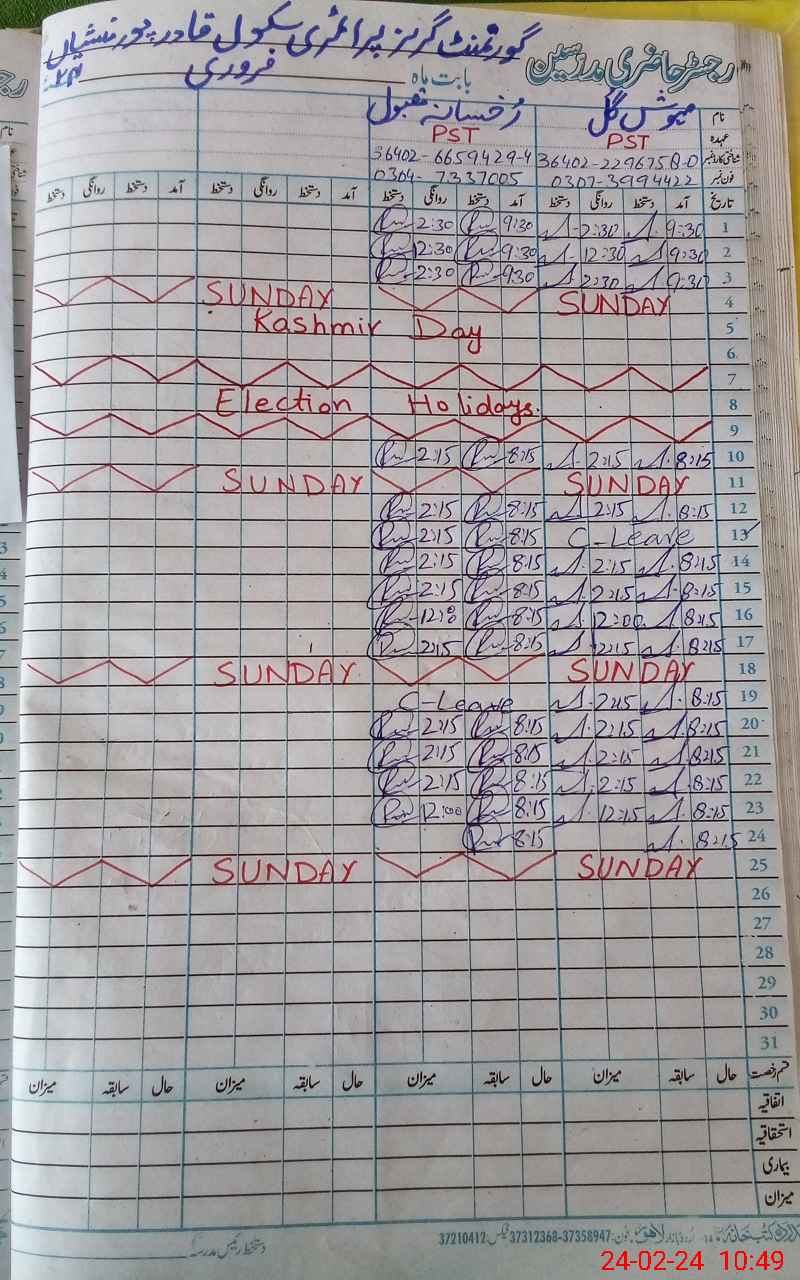 رجسٹر حاضری مدرسین گورنمنٹ گرلز پرائمری سکول قادر پور منشیاں
بابت ماہ فروری
نام میوش گل رُخسانہ مقبول
عہدہ PST PST
36402-6659429-4
فون نمبر 0307-3994422 0304-7337005
تاریخ آمد دستخط روانگی دستخط آمد دستخط روانگی دستخط آمد دستخط روانگی دستخط آمد دستخط روانگی دستخط
1 9:30 2:30 9:30 2:30
2 9:30 12:30 9:30 12:30
3 9:30 2:30 9:30 2:30
4 SUNDAY SUNDAY
5 Kashmir Day
6
7
8 Election Holidays.
9
10 8:15 2:15 8:15 2:15
11 SUNDAY SUNDAY
12 8:15 2:15 8:15 2:15
13 C-Leave 8:15 2:15
14 8:15 2:15 8:15 2:15
15 8:15 2:15 8:15 2:15
16 8:15 12:00 8:15
17 8:15 8:15 2:15
18 SUNDAY SUNDAY
19 8:15 2:15 C-Leave
20 8:15 2:15 8:15 2:15
21 8:15 2:15 8:15 2:15
22 8:15 2:15 8:15 2:15
23 8:15 12:15 8:15 12:00
24 8:15 8:15
25 SUNDAY SUNDAY
26
27
28
29
30
31
قسم رخصت حال سابقہ میزان حال سابقہ میزان حال سابقہ میزان حال سابقہ میزان
اتفاقیہ
استحقاقیہ
بیماری
میزان
دستخط رئیس مدرسہ
لاہور فون: 37312368-37358947 فیکس: 37210412
24-02-24 10:49